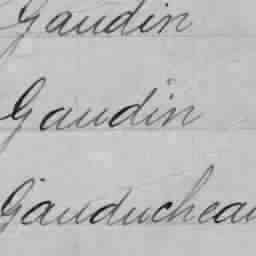 Gaudin
Gaudin
Gauducheau